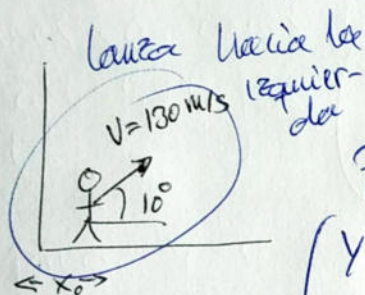 lanza hacia la
izquier-
da
V=130 m/s
10°
( y
← x₀ →